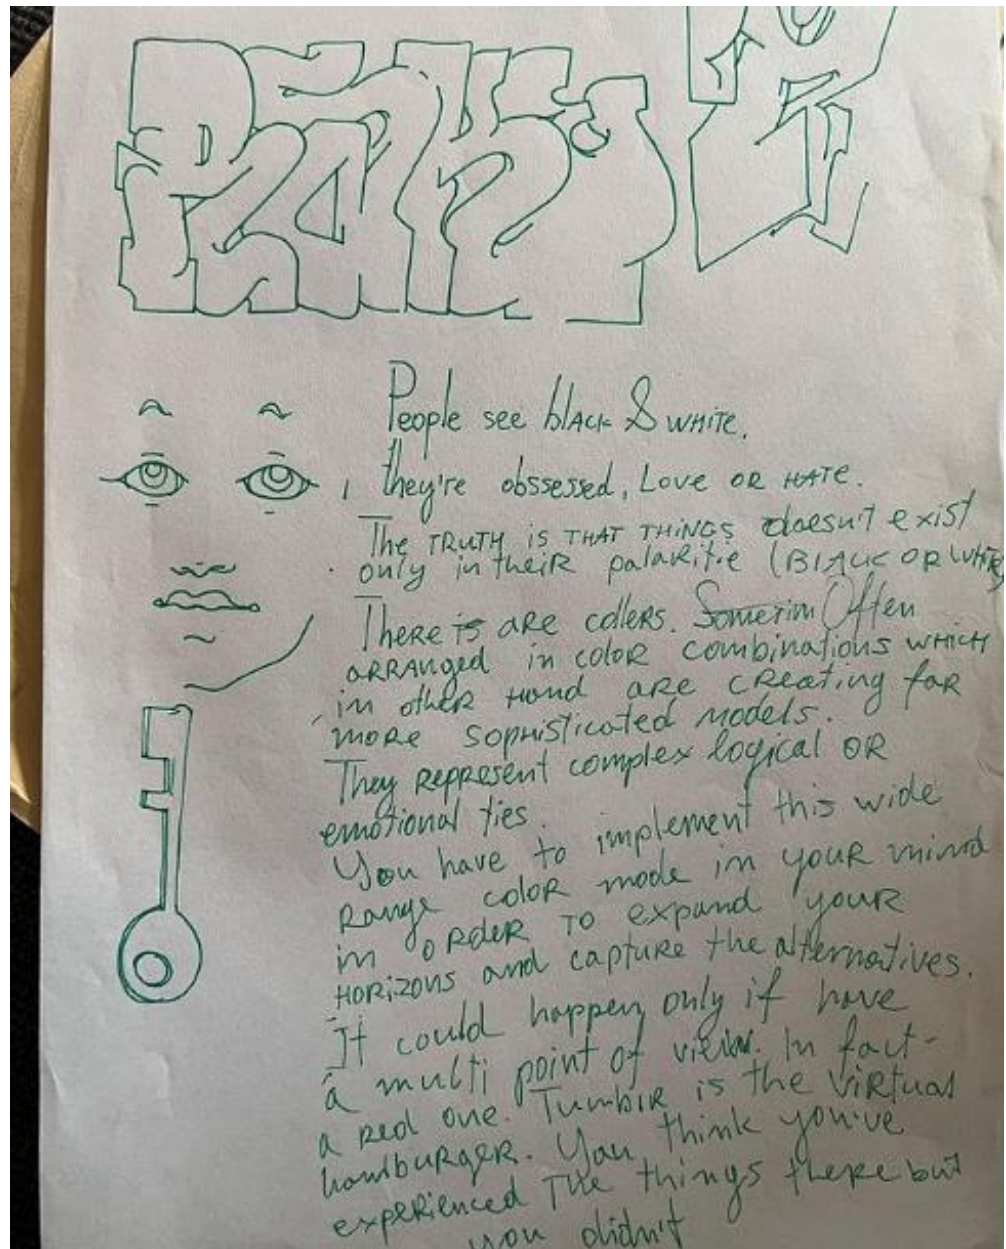 People see black & white.
they're obssessed, Love or hate.
The truth is that things doesn't exist
only in their palaritie (Black or white)
There is are collers. Sometim Often
arranged in color combinations which
in other hand are creating far
more sophisticated models.
They represent complex logical or
emotional ties.
You have to implement this wide
range color mode in your mind
in order to expand your
horizons and capture the alternatives.
It could happen only if have
a multi point of view. In fact-
a red one. Tumblr is the virtual
hamburger. You think you've
experienced the things there but
you didn't